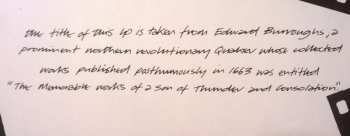 The title of this LP is taken from Edward Burroughs, a
prominent northern revolutionary Quaker whose collected
works published posthumously in 1663 was entitled
"The Memorable works of a son of Thunder and Consolation"